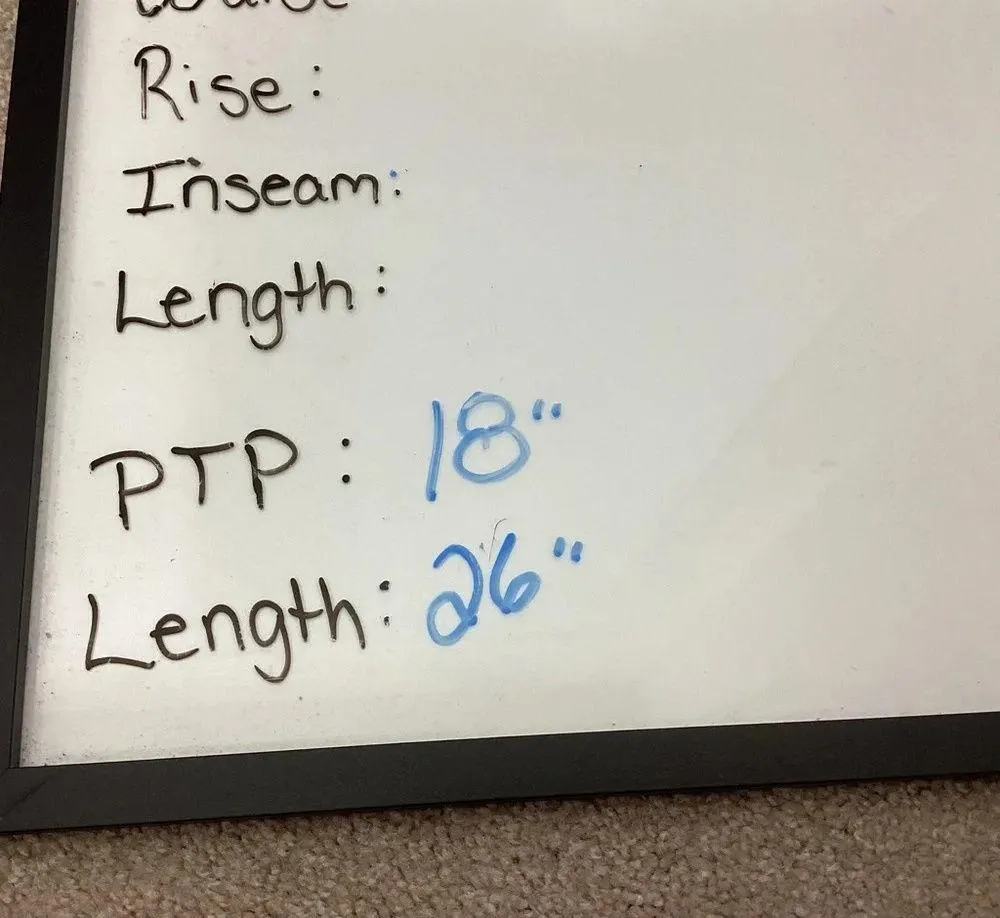 Rise:
Inseam:
Length:
PTP: 18"
Length: 26"